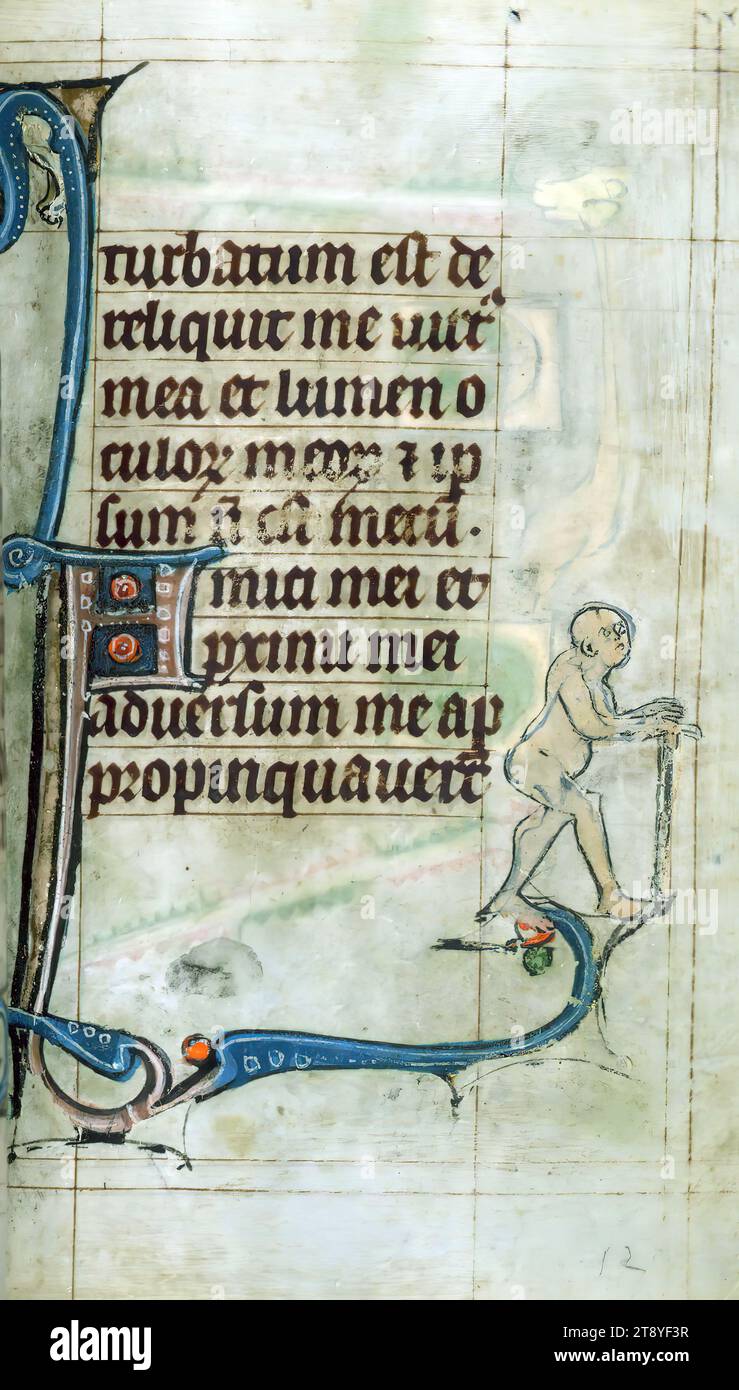 turbatum est de
reliquit me uirt᷑
mea et lumen o
culoꝝ meoꝝ ⁊ ip
sum ñ est mecū.
Amici mei et
pximi mei
aduersum me ap
propinquauerūt
12
alamy
Image ID: 2T8YF3R
www.alamy.com